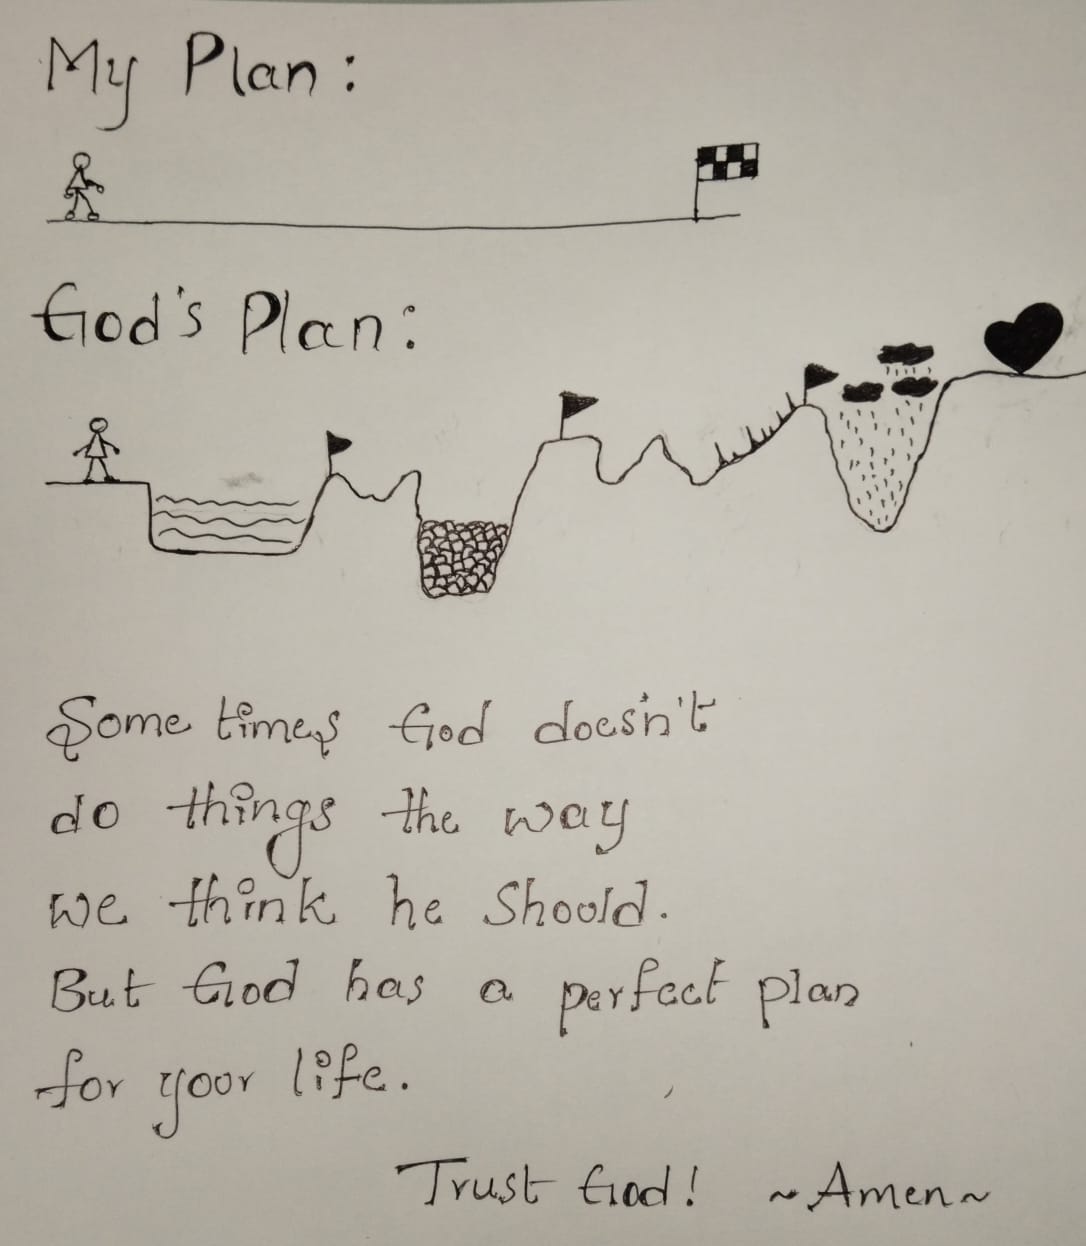 My Plan:
God's Plan:
Some times God doesn't
do things the way
we think he Shoold.
But God has a perfect plan
for yoor life.
Trust God! ~Amen~